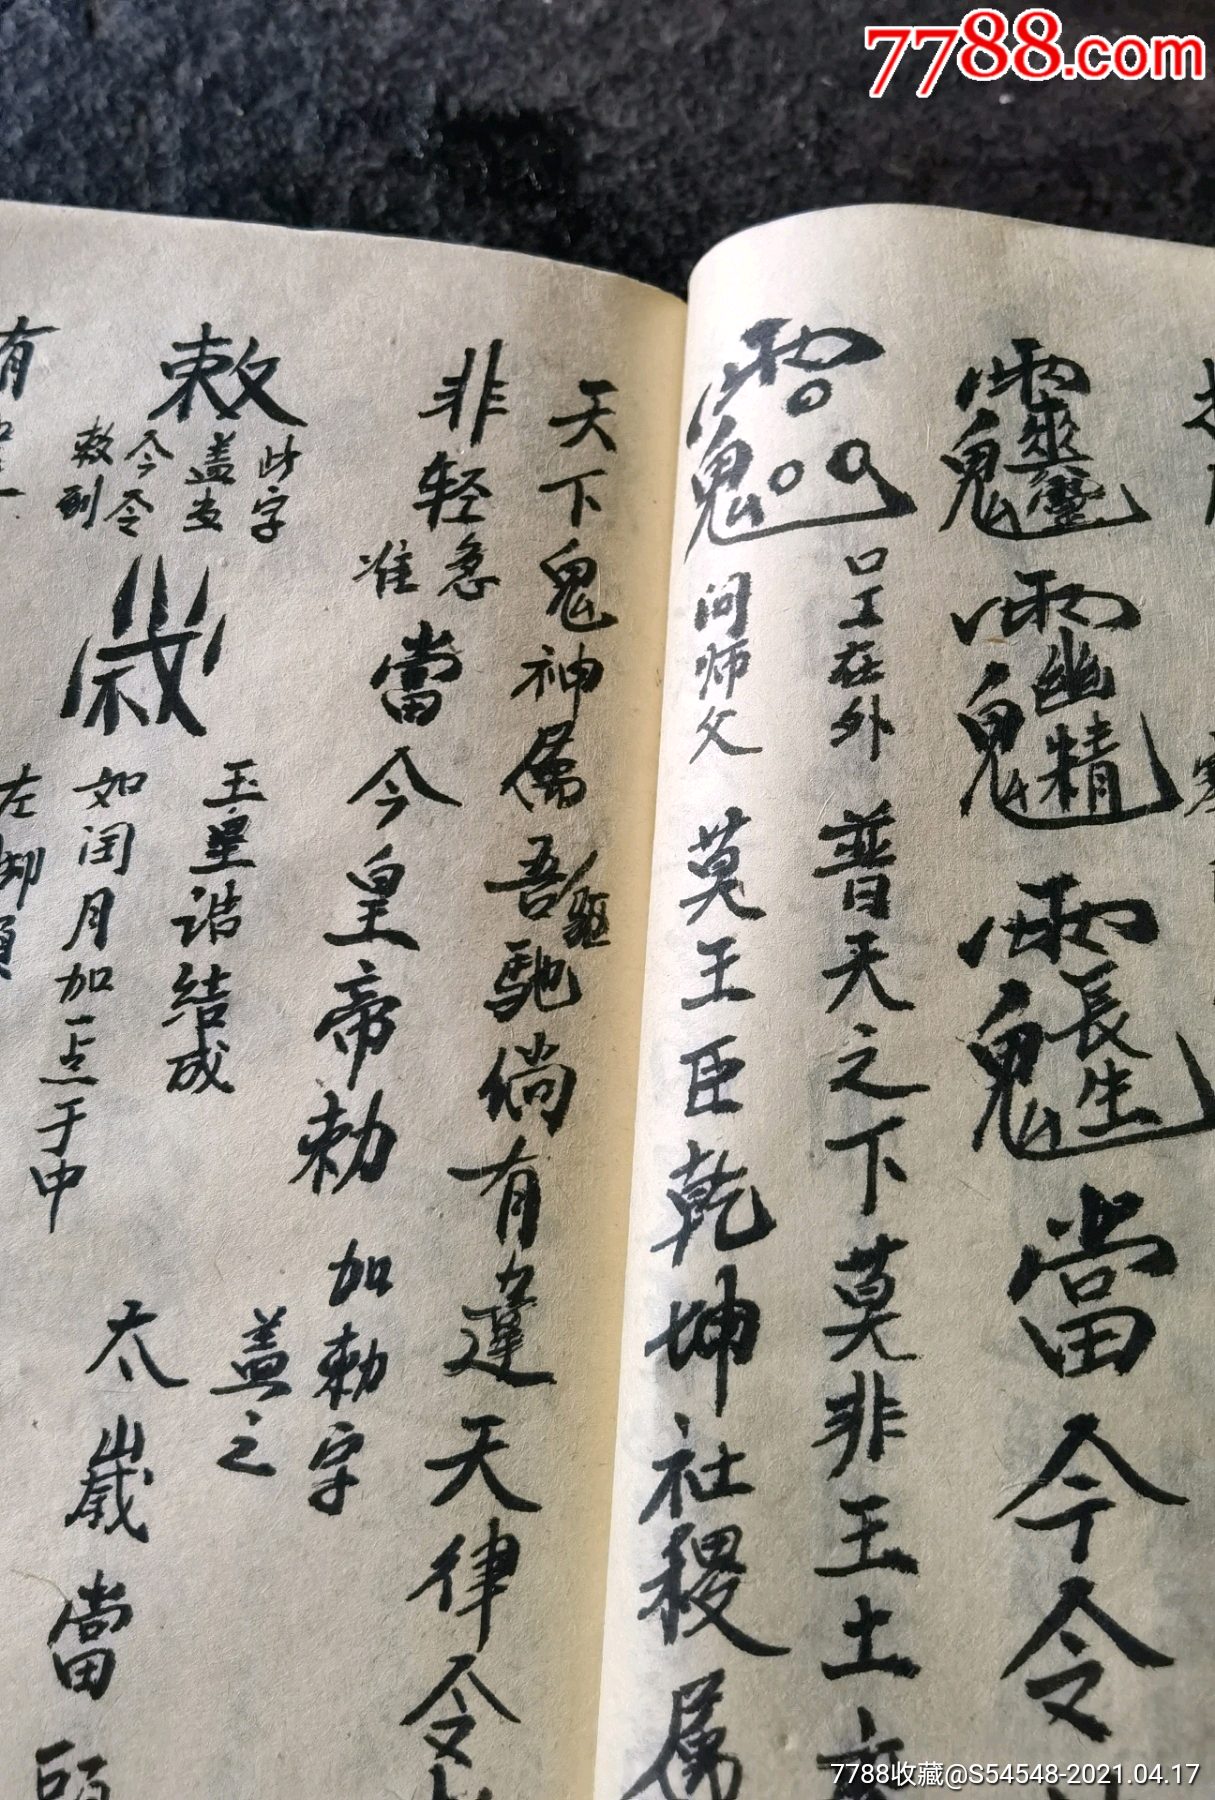 7788.com
當今令
口工在外 普天之下莫非王土
问师父 莫王臣乾坤社稷属
天下鬼神属吾驰倘有違天律令
驱
非轻急
准 當今皇帝勅 加勅字
盖之
敕 此字
盖安
今令
敕到
玉皇诰结成
如闰月加一点于中 太歲當頭
有
左
7788收藏@S54548-2021.04.17